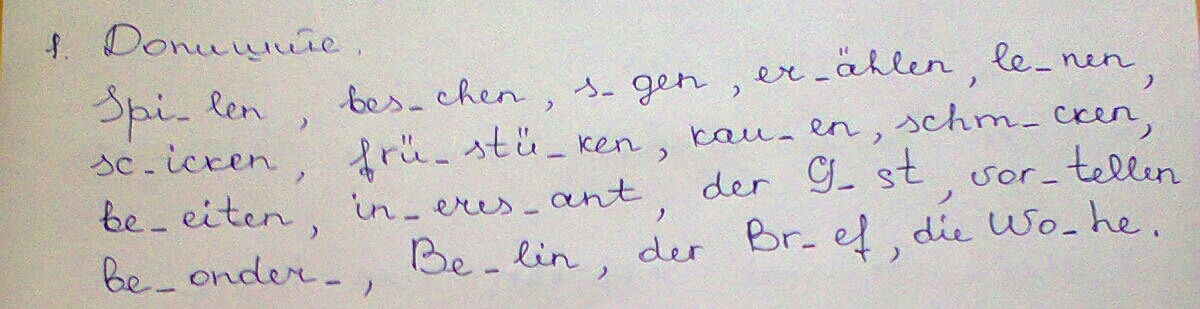 1. Допишите.
Spi_len, bes_chen, s_gen, er_ählen, le_nen,
sc_icken, frü_stü_ken, kau_en, schm_cken,
be_eiten, in_eres_ant, der G_st, vor_tellen
be_onder_, Be_lin, der Br_ef, die Wo_he.